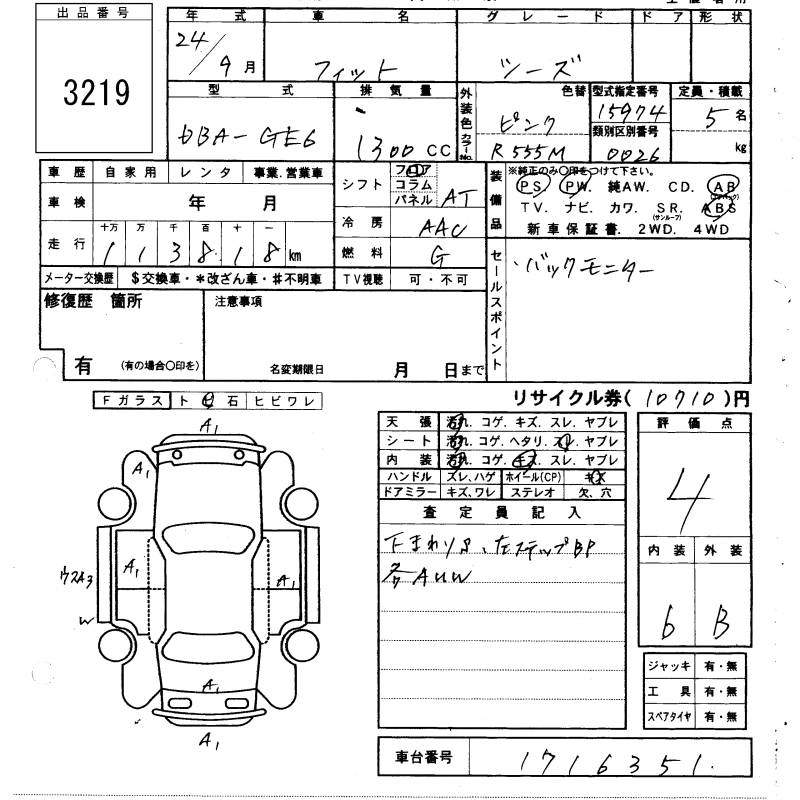 出品番号
3219
年式 車名 グレード ドア 形状
24/9月 フィット シーズ
型式 排気量 外装色 色替 型式指定番号 定員・積載
DBA-GE6 1300CC ピンク 15974 5名
カラーNo. R555M 類別区別番号 0026 kg
車歴 自家用 レンタ 事業.営業車
車検 年 月
走行 十万 万 千 百 十 一
1 1 3 8 1 8 km
メーター交換歴 $交換車・*改ざん車・#不明車
シフト フロア コラム パネル AT
冷房 AAC
燃料 G
TV視聴 可・不可
装備品
※純正のみ〇印をつけて下さい。
PS PW. 純AW. CD. AB
(エアバック)
TV. ナビ. カワ. SR. ABS
(サンルーフ)
新車保証書. 2WD. 4WD
セールスポイント
・バックモニター
修復歴 箇所
注意事項
有 (有の場合〇印を)
名変期限日 月 日まで
Fガラス ト ビ 石 ヒビワレ
リサイクル券(10710)円
天張 汚れ. コゲ. キズ. スレ. ヤブレ
シート 汚れ. コゲ. ヘタリ. スレ. ヤブレ
内装 汚れ. コゲ. キズ. スレ. ヤブレ
ハンドル スレ、ハゲ ホイール(CP) キズ
ドアミラー キズ、ワレ ステレオ 欠、穴
査定員記入
下まわりS、左ステップBP
各AUW
評価点
4
内装 外装
6 B
A1
A1
A1
A1
ウスA3
W
A1
A1
ジャッキ 有・無
工具 有・無
スペアタイヤ 有・無
車台番号 1716351